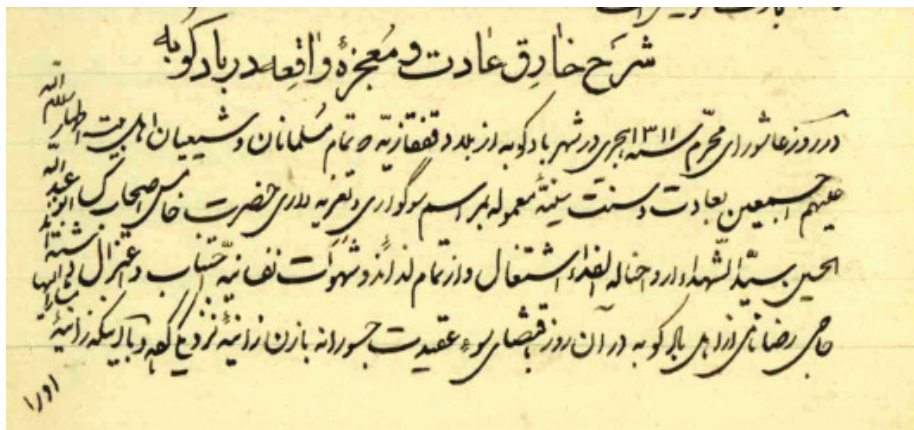 شرح خارق عادت و معجزهٔ واقعه در بادکوبه
در روز عاشورای محرم سنه ۱۳۱۱ هجری در شهر بادکوبه از بلاد قفقازیه تمام مسلمانان و شیعیان اهل بیت اطهار سلام الله
علیهم اجمعین بعادت و سنت سنیهٔ معموله بمراسم سوگواری و تعزیه داری حضرت خامس اصحاب کسا ابو عبدالله
الحسین سیدالشهداء ارواحنا له الفداء اشتغال و از تمام لذائذ و شهوات نفسانیه اجتناب و اعتزال داشته‌اند
حاجی رضا نامی از اهل بادکوبه در آن روز باقتضای سوء عقیدت جسورانه با زن زانیهٔ نزدیکی کرده و با اینکه زانیهٔ
او را